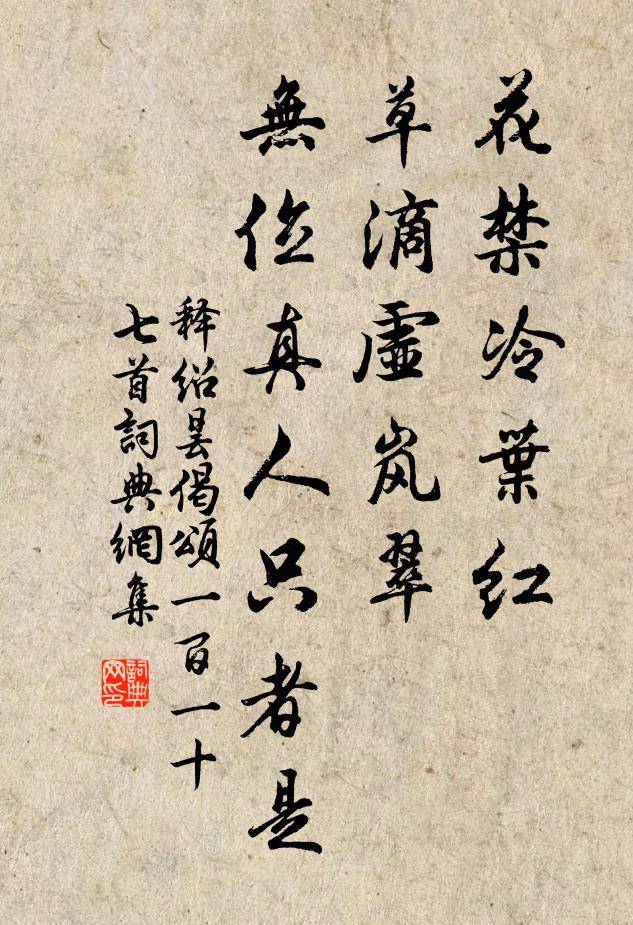 花禁冷葉红
草滴虚岚翠
無位真人只者是
释绍昙偈頌一百一十
七首詞典網集
詞典网印